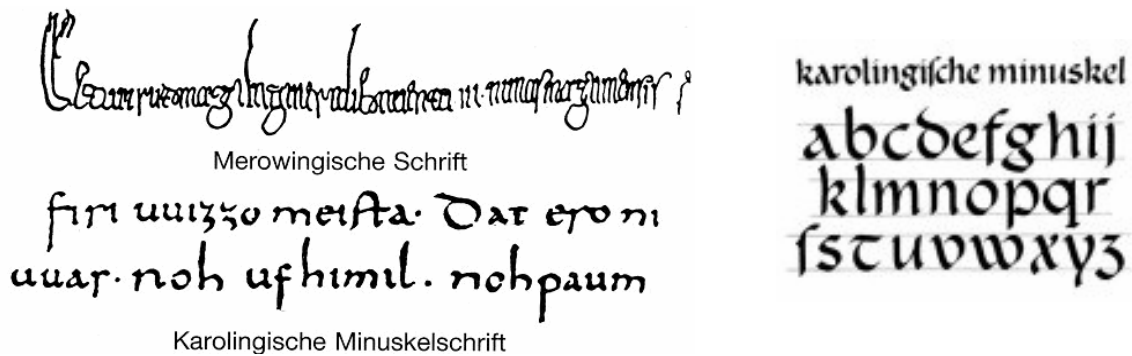 Merowingische Schrift
firi uuizzo meiſta· Dat ero ni
uuaſ· noh ufhimil. noh paum
Karolingische Minuskelschrift
karolingiſche minuskel
abcdefghij
klmnopqr
ſstuvwxyz